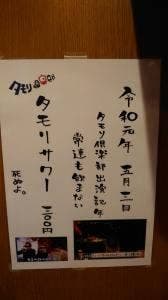 令和元年 五月三日
タモリ倶楽部出演記念
常連も飲まない
タモリサワー 三〇〇円
死ぬよ。